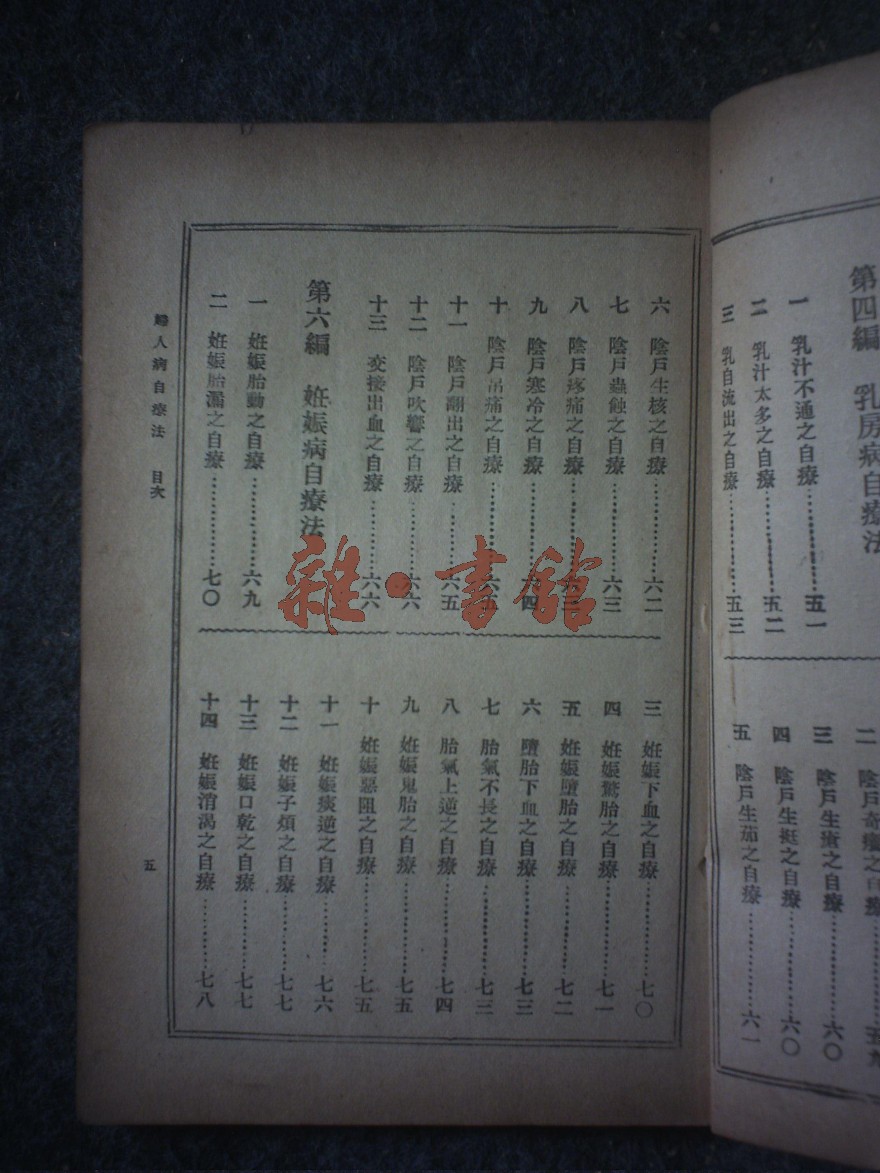 第四編　乳房病自療法
一　乳汁不通之自療…………五一
二　乳汁太多之自療…………五二
三　乳自流出之自療…………五三
三　陰戶生瘡之自療…………六〇
四　陰戶生挺之自療…………六〇
五　陰戶生茄之自療…………六一
六　陰戶生核之自療…………六二
七　陰戶蟲蝕之自療…………六三
八　陰戶疼痛之自療…………六三
九　陰戶寒冷之自療…………六四
十　陰戶吊痛之自療…………六五
十一　陰戶翻出之自療…………六五
十二　陰戶吹響之自療…………六六
十三　交接出血之自療…………六六
第六編　姙娠病自療法
一　姙娠胎動之自療…………六九
二　姙娠胎漏之自療…………七〇
三　姙娠下血之自療…………七〇
四　姙娠驚胎之自療…………七一
五　姙娠墮胎之自療…………七二
六　墮胎下血之自療…………七三
七　胎氣不長之自療…………七三
八　胎氣上逆之自療…………七四
九　姙娠鬼胎之自療…………七五
十　姙娠惡阻之自療…………七五
十一　姙娠痰逆之自療…………七六
十二　姙娠子煩之自療…………七七
十三　姙娠口乾之自療…………七七
十四　姙娠消渴之自療…………七八
婦人病自療法　目次
五
雜·書館